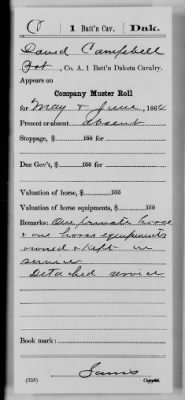 C | 1 Batt'n Cav. | Dak.
David Campbell
Pvt, Co. A, 1 Batt'n Dakota Cavalry.
Appears on
Company Muster Roll
for May & June, 1864
Present or absent absent
Stoppage, $ 100 for
Due Gov't, $ 100 for
Valuation of horse, $ 100
Valuation of horse equipments, $ 100
Remarks: One private horse
& one horse equipments
owned & kept in
service
Detached service
Book mark:
(358) Copyist.